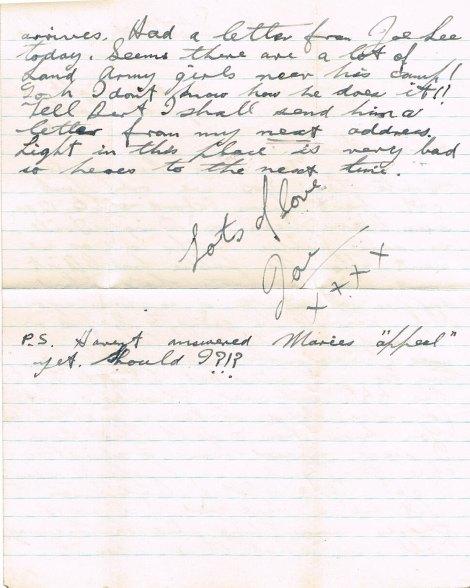 arrives. Had a letter from Joe Lee
today. Seems there are a lot of
Land Army girls near his camp!
Gosh I don't know how he does it!!
Tell Bert I shall send him a
letter from my next address.
Light in this place is very bad
so heres to the next time.
Lots of love
Joe
x x x x
P.S. Havent answered Maries "appeal"
yet. Should I?!?